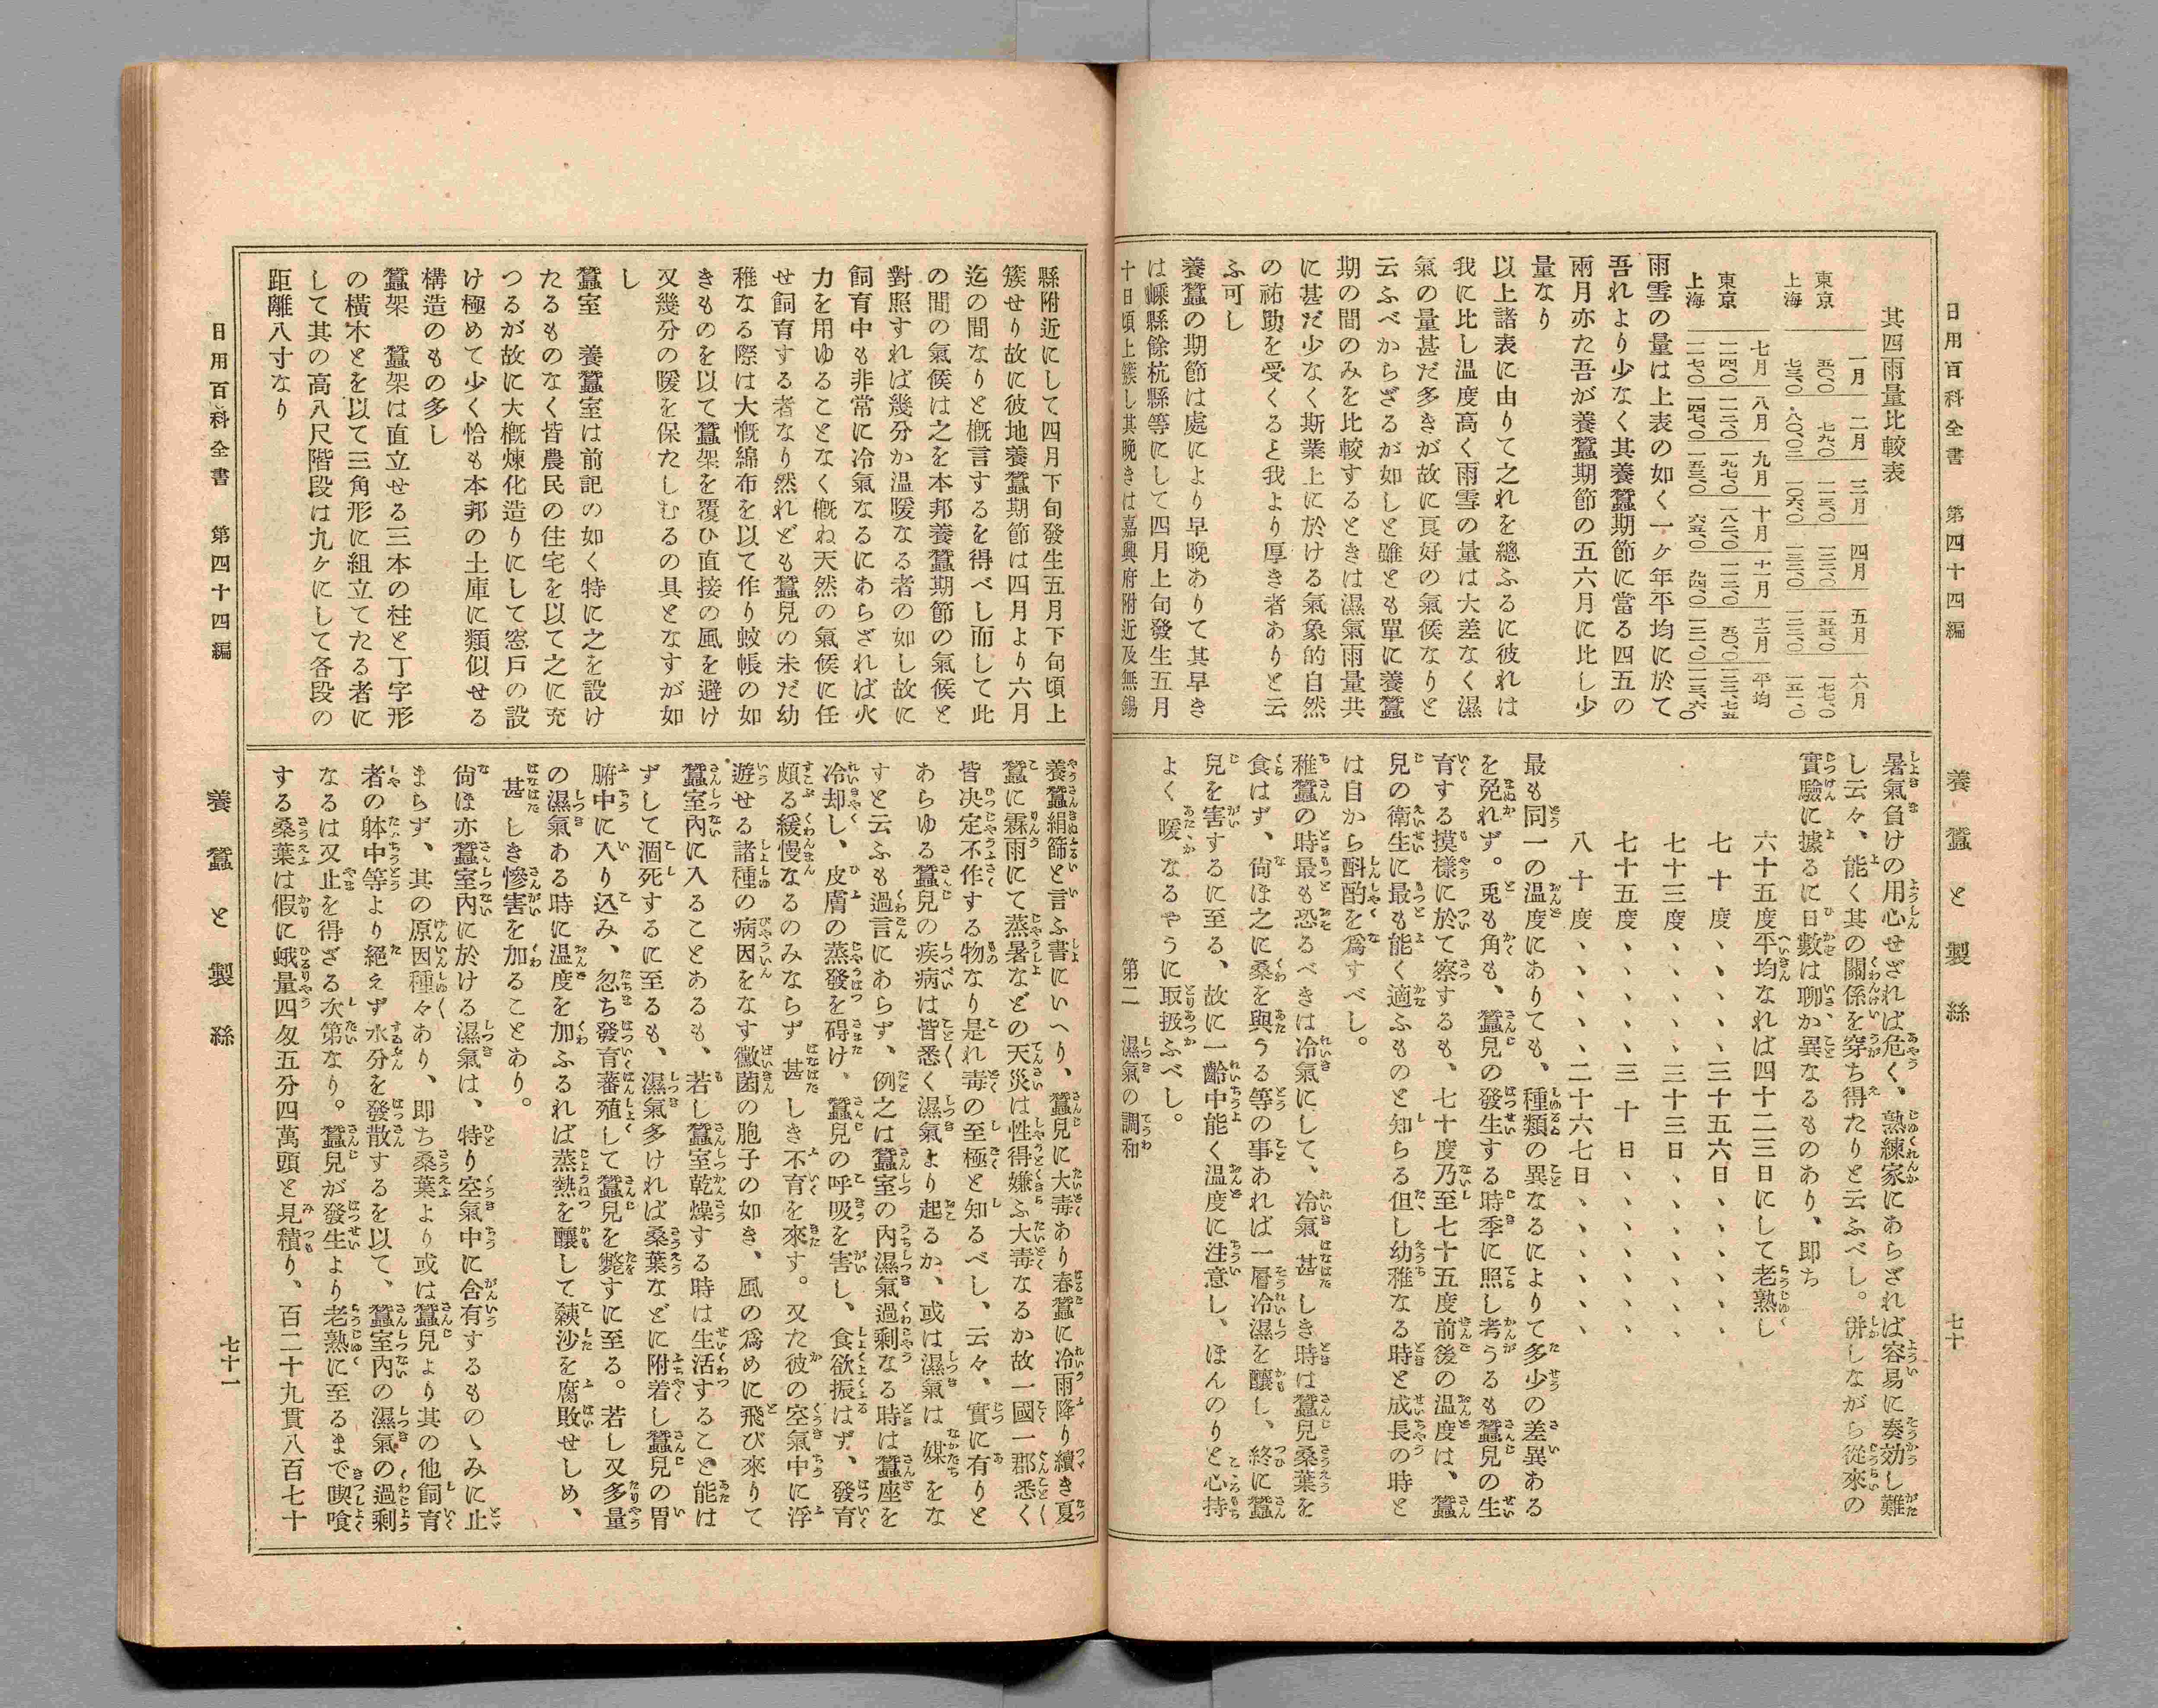 日用百科全書　第四十四編　養蠶と製絲　七十
其四雨量比較表
一月　二月　三月　四月　五月　六月
東京　五〇、〇　七九、〇　一一三、〇　一三一、〇　一五五、〇　一七七、〇
上海
七月　八月　九月　十月　十一月　十二月　平均
東京
上海
雨雪の量は上表の如く一ヶ年平均に於て
吾れより少なく其養蠶期節に當る四五の
兩月亦た吾が養蠶期節の五六月に比し少
量なり
以上諸表に由りて之れを總ふるに彼れは
我に比し温度高く雨雪の量は大差なく濕
氣の量甚だ多きが故に良好の氣候なりと
云ふべからざるが如しと雖とも單に養蠶
期の間のみを比較するときは濕氣雨量共
に甚だ少なく斯業上に於ける氣象的自然
の祐助を受くると我より厚き者ありと云
ふ可し
養蠶の期節は處により早晩ありて其早き
は嵊縣餘杭縣等にして四月上旬發生五月
十日頃上簇し其晩きは嘉興府附近及無錫
暑氣負けの用心せざれば危く、熟練家にあらざれば容易に奏効し難
し云々、能く其の關係を穿ち得たりと云ふべし。併しながら從來の
實驗に據るに日數は聊か異なるものあり、即ち
六十五度平均なれば四十二三日にして老熟し
七十度、、、、、三十五六日、、、、、、
七十三度、、、、三十三日、、、、、、、
七十五度、、、、三十日、、、、、、、
八十度、、、、、二十六七日、、、、、、
最も同一の温度にありても、種類の異なるによりて多少の差異ある
を免れず。兎も角も、蠶兒の發生する時季に照し考うるも蠶兒の生
育する摸樣に於て察するも、七十度乃至七十五度前後の温度は、蠶
兒の衛生に最も能く適ふものと知らる但し幼稚なる時と成長の時と
は自から斟酌を爲すべし。
稚蠶の時最も恐るべきは冷氣にして、冷氣甚しき時は蠶兒桑葉を
食はず、尙ほ之に桑を與うる等の事あれば一層冷濕を釀し、終に蠶
兒を害するに至る、故に一齡中能く温度に注意し、ほんのりと心持
よく暖なるやうに取扱ふべし。
第二　濕氣の調和
縣附近にして四月下旬發生五月下旬頃上
簇せり故に彼地養蠶期節は四月より六月
迄の間なりと概言するを得べし而して此
の間の氣候は之を本邦養蠶期節の氣候と
對照すれば幾分か温暖なる者の如し故に
飼育中も非常に冷氣なるにあらざれば火
力を用ゆることなく概ね天然の氣候に任
せ飼育する者なり然れども蠶兒の未だ幼
稚なる際は大慨綿布を以て作り蚊帳の如
きものを以て蠶架を覆ひ直接の風を避け
又幾分の暖を保たしむるの具となすが如
し
蠶室　養蠶室は前記の如く特に之を設け
たるものなく皆農民の住宅を以て之に充
つるが故に大概煉化造りにして窓戸の設
け極めて少く恰も本邦の土庫に類似せる
構造のもの多し
蠶架　蠶架は直立せる三本の柱と丁字形
の橫木とを以て三角形に組立てたる者に
して其の高八尺階段は九ヶにして各段の
距離八寸なり
養蠶絹篩と言ふ書にいへり、蠶兒に大毒あり春蠶に冷雨降り續き夏
蠶に霖雨にて蒸暑などの天災は性得嫌ふ大毒なるか故一國一郡悉く
皆決定不作する物なり是れ毒の至極と知るべし、云々、實に有りと
あらゆる蠶兒の疾病は皆悉く濕氣より起るか、或は濕氣は媒をな
すと云ふも過言にあらず、例之は蠶室の內濕氣過剩なる時は蠶座を
冷却し、皮膚の蒸發を碍け、蠶兒の呼吸を害し、食欲振はず、發育
頗る緩慢なるのみならず甚しき不育を來す。又た彼の空氣中に浮
遊せる諸種の病因をなす黴菌の胞子の如き、風の爲めに飛び來りて
蠶室內に入ることあるも、若し蠶室乾燥する時は生活すること能は
ずして涸死するに至るも、濕氣多ければ桑葉などに附着し蠶兒の胃
腑中に入り込み、忽ち發育蕃殖して蠶兒を斃すに至る。若し又多量
の濕氣ある時に温度を加ふれば蒸熱を釀して蘱沙を腐敗せしめ、
甚しき慘害を加ることあり。
尙ほ亦蠶室內に於ける濕氣は、特り空氣中に含有するものゝみに止
まらず、其の原因種々あり、即ち桑葉より或は蠶兒より其の他飼育
者の躰中等より絕えず水分を發散するを以て、蠶室內の濕氣の過剩
なるは又止を得ざる次第なり。蠶兒が發生より老熟に至るまで喫喰
する桑葉は假に蛾量四匁五分四萬頭と見積り、百二十九貫八百七十
日用百科全書　第四十四編　養蠶と製絲　七十一